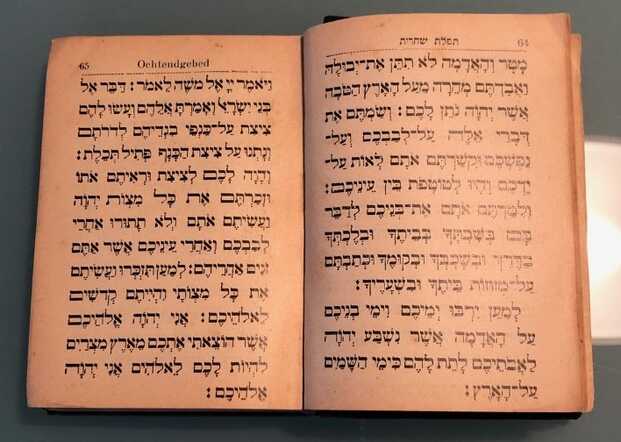 תפלת שחרית 64
מָטָר וְהָאֲדָמָה לֹא תִתֵּן אֶת־יְבוּלָהּ
וַאֲבַדְתֶּם מְהֵרָה מֵעַל הָאָרֶץ הַטֹּבָה
אֲשֶׁר יְהֹוָה נֹתֵן לָכֶם: וְשַׂמְתֶּם אֶת
דְּבָרַי אֵלֶּה עַל־לְבַבְכֶם וְעַל־
נַפְשְׁכֶם וּקְשַׁרְתֶּם אֹתָם לְאוֹת עַל־
יֶדְכֶם וְהָיוּ לְטוֹטָפֹת בֵּין עֵינֵיכֶם:
וְלִמַּדְתֶּם אֹתָם אֶת־בְּנֵיכֶם לְדַבֵּר
בָּם בְּשִׁבְתְּךָ בְּבֵיתֶךָ וּבְלֶכְתְּךָ
בַדֶּרֶךְ וּבְשָׁכְבְּךָ וּבְקוּמֶךָ וּכְתַבְתָּם
עַל־מְזוּזוֹת בֵּיתֶךָ וּבִשְׁעָרֶיךָ:
לְמַעַן יִרְבּוּ יְמֵיכֶם וִימֵי בְנֵיכֶם
עַל הָאֲדָמָה אֲשֶׁר נִשְׁבַּע יְהֹוָה
לַאֲבֹתֵיכֶם לָתֵת לָהֶם כִּימֵי הַשָּׁמַיִם
עַל־הָאָרֶץ:
65 Ochtendgebed
וַיֹּאמֶר יְיָ אֶל מֹשֶׁה לֵּאמֹר: דַּבֵּר אֶל
בְּנֵי יִשְׂרָאֵל וְאָמַרְתָּ אֲלֵהֶם וְעָשׂוּ לָהֶם
צִיצִת עַל־כַּנְפֵי בִגְדֵיהֶם לְדֹרֹתָם
וְנָתְנוּ עַל צִיצִת הַכָּנָף פְּתִיל תְּכֵלֶת:
וְהָיָה לָכֶם לְצִיצִת וּרְאִיתֶם אֹתוֹ
וּזְכַרְתֶּם אֶת כָּל מִצְוֹת יְהֹוָה
וַעֲשִׂיתֶם אֹתָם וְלֹא תָתוּרוּ אַחֲרֵי
לְבַבְכֶם וְאַחֲרֵי עֵינֵיכֶם אֲשֶׁר אַתֶּם
זֹנִים אַחֲרֵיהֶם: לְמַעַן תִּזְכְּרוּ וַעֲשִׂיתֶם
אֶת כָּל מִצְוֹתָי וִהְיִיתֶם קְדֹשִׁים
לֵאלֹהֵיכֶם: אֲנִי יְהֹוָה אֱלֹהֵיכֶם
אֲשֶׁר הוֹצֵאתִי אֶתְכֶם מֵאֶרֶץ מִצְרַיִם
לִהְיוֹת לָכֶם לֵאלֹהִים אֲנִי יְהֹוָה
אֱלֹהֵיכֶם: